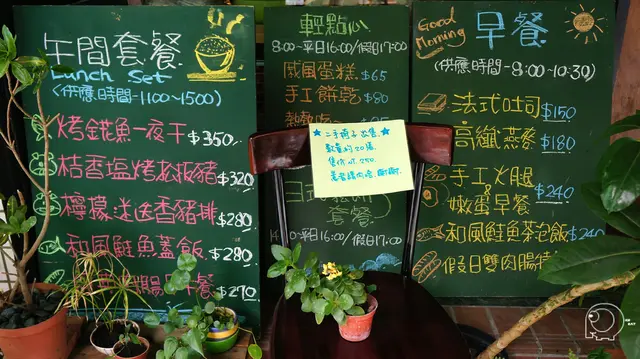 午間套餐
Lunch Set
(供應時間-1100~1500)
烤花魚一夜干 $350
桔香塩烤松板豬 $320
檸檬迷迭香豬排 $280
和風鮭魚蓋飯 $280
$270
輕點心
8:00~平日16:00/假日17:00
戚風蛋糕 $65
手工餅乾 $80
套餐
~平日16:00/假日17:00
二手椅子出售.
數量約20張.
售價
意者請內洽.謝謝.
Good Morning
早餐
(供應時間-8:00~10:30)
法式吐司 $150
高纖燕麥 $180
手工火腿
&
嫩蛋早餐 $240
和風鮭魚茶泡飯 $240
假日雙肉腸